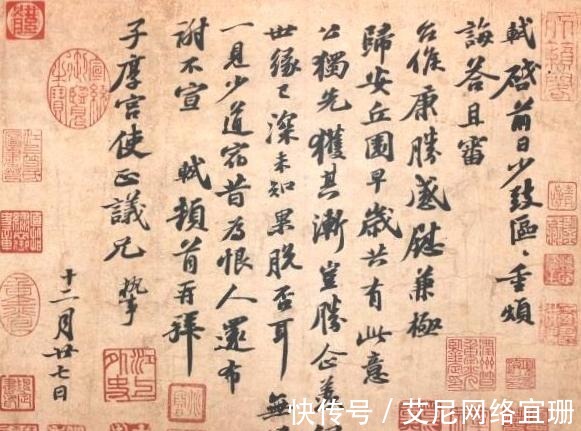 軾啟前日少致區〻重煩
誨答且審
台候康勝感慰兼極
歸安丘園早歲共有此意
公獨先獲其漸豈勝企羨
世緣已深未知果脫否耳無
一見少道宿昔為恨人還布
謝不宣 軾頓首再拜
子厚宮使正議兄 執事
十二月廿七日
快传号 / 艾尼网络宜珊